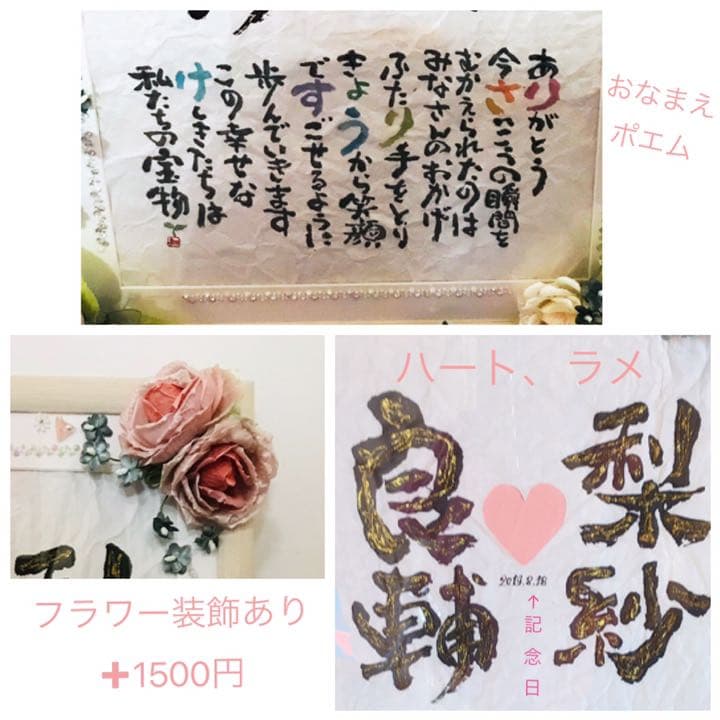 ありがとう
今さいこうの瞬間を
むかえられたのは
みなさんのおかげ
ふたり手をとり
きょうから笑顔
ですごせるように
歩んでいきます
この幸せな
けしきたちは
私たちの宝物
おなまえ
ポエム
フラワー装飾あり
+1500円
ハート、ラメ
梨紗
良輔
↑記念日